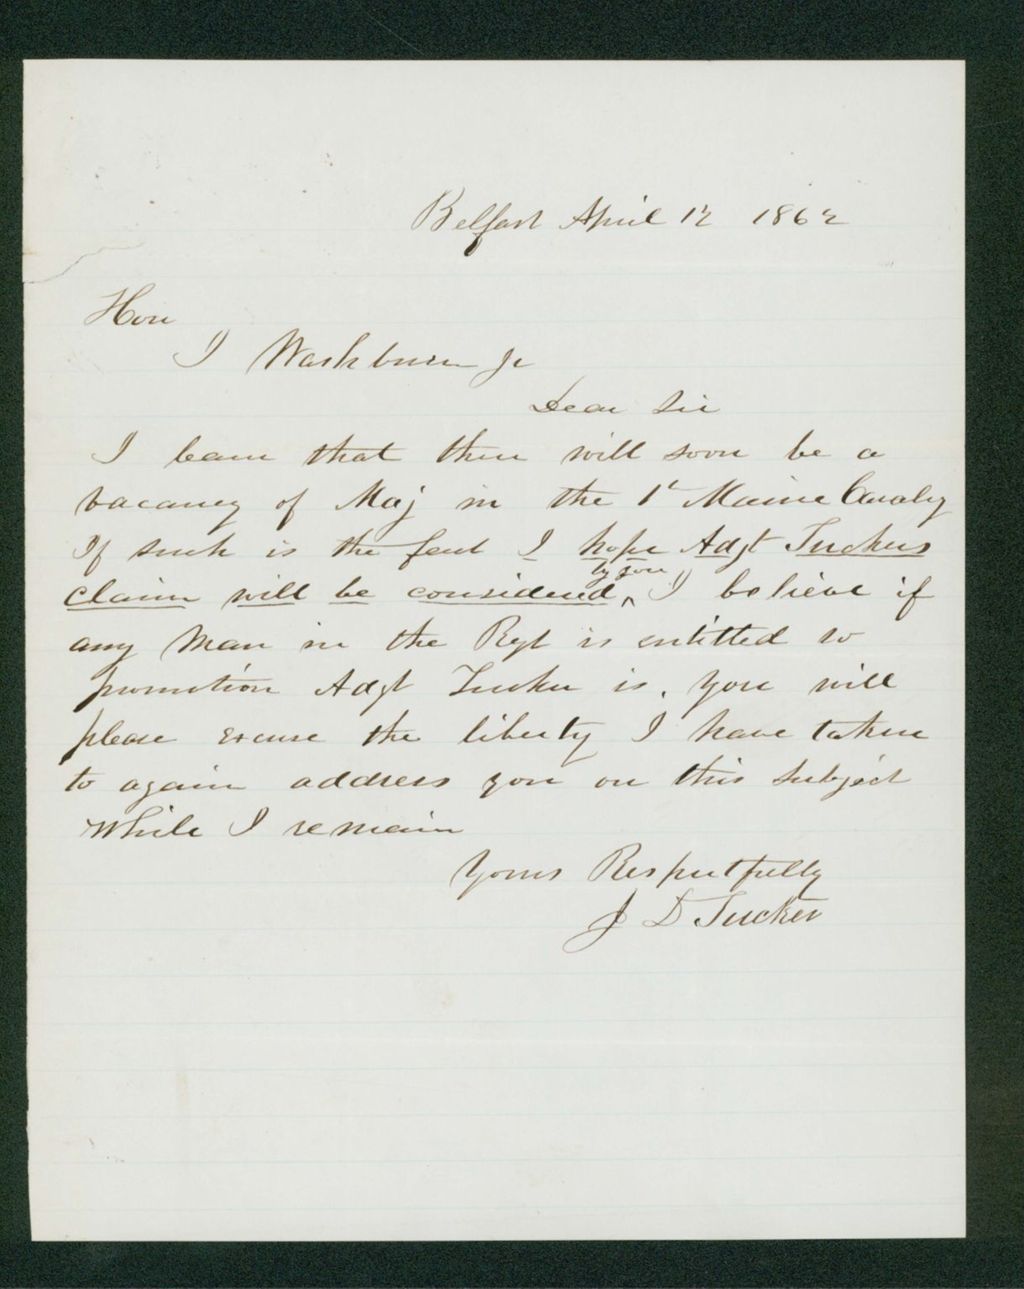 Belfast April 12 1862
Hon
I Washburn Jr
Dear Sir
I learn that there will soon be a
vacancy of Maj in the 1st Maine Cavalry
If such is the fact I hope Adjt Tuckers
by you
claim will be considered ^ I believe if
any man in the Regt is entitled to
promotion Adjt Tucker is. You will
please excuse the liberty I have taken
to again address you on this subject
While I remain
Yours Respectfully
J D Tucker